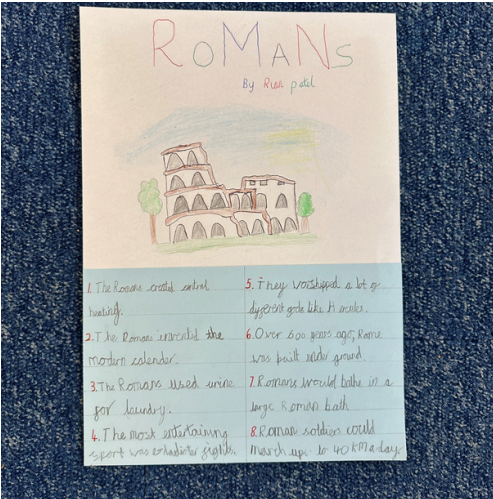 RoMANs
By Rian patel
1. The Romans created central
heating.
2. The Romans invented the
modern calender.
3. The Romans used urine
for laundry.
4. The most entertaining
sport was fights.
5. They worshipped a lot of
different gods like
6. Over 500 years ago, Rome
was built under ground.
7. Romans would bathe in a
large Roman bath
8. Roman soldiers could
March up to 40 KM a day.